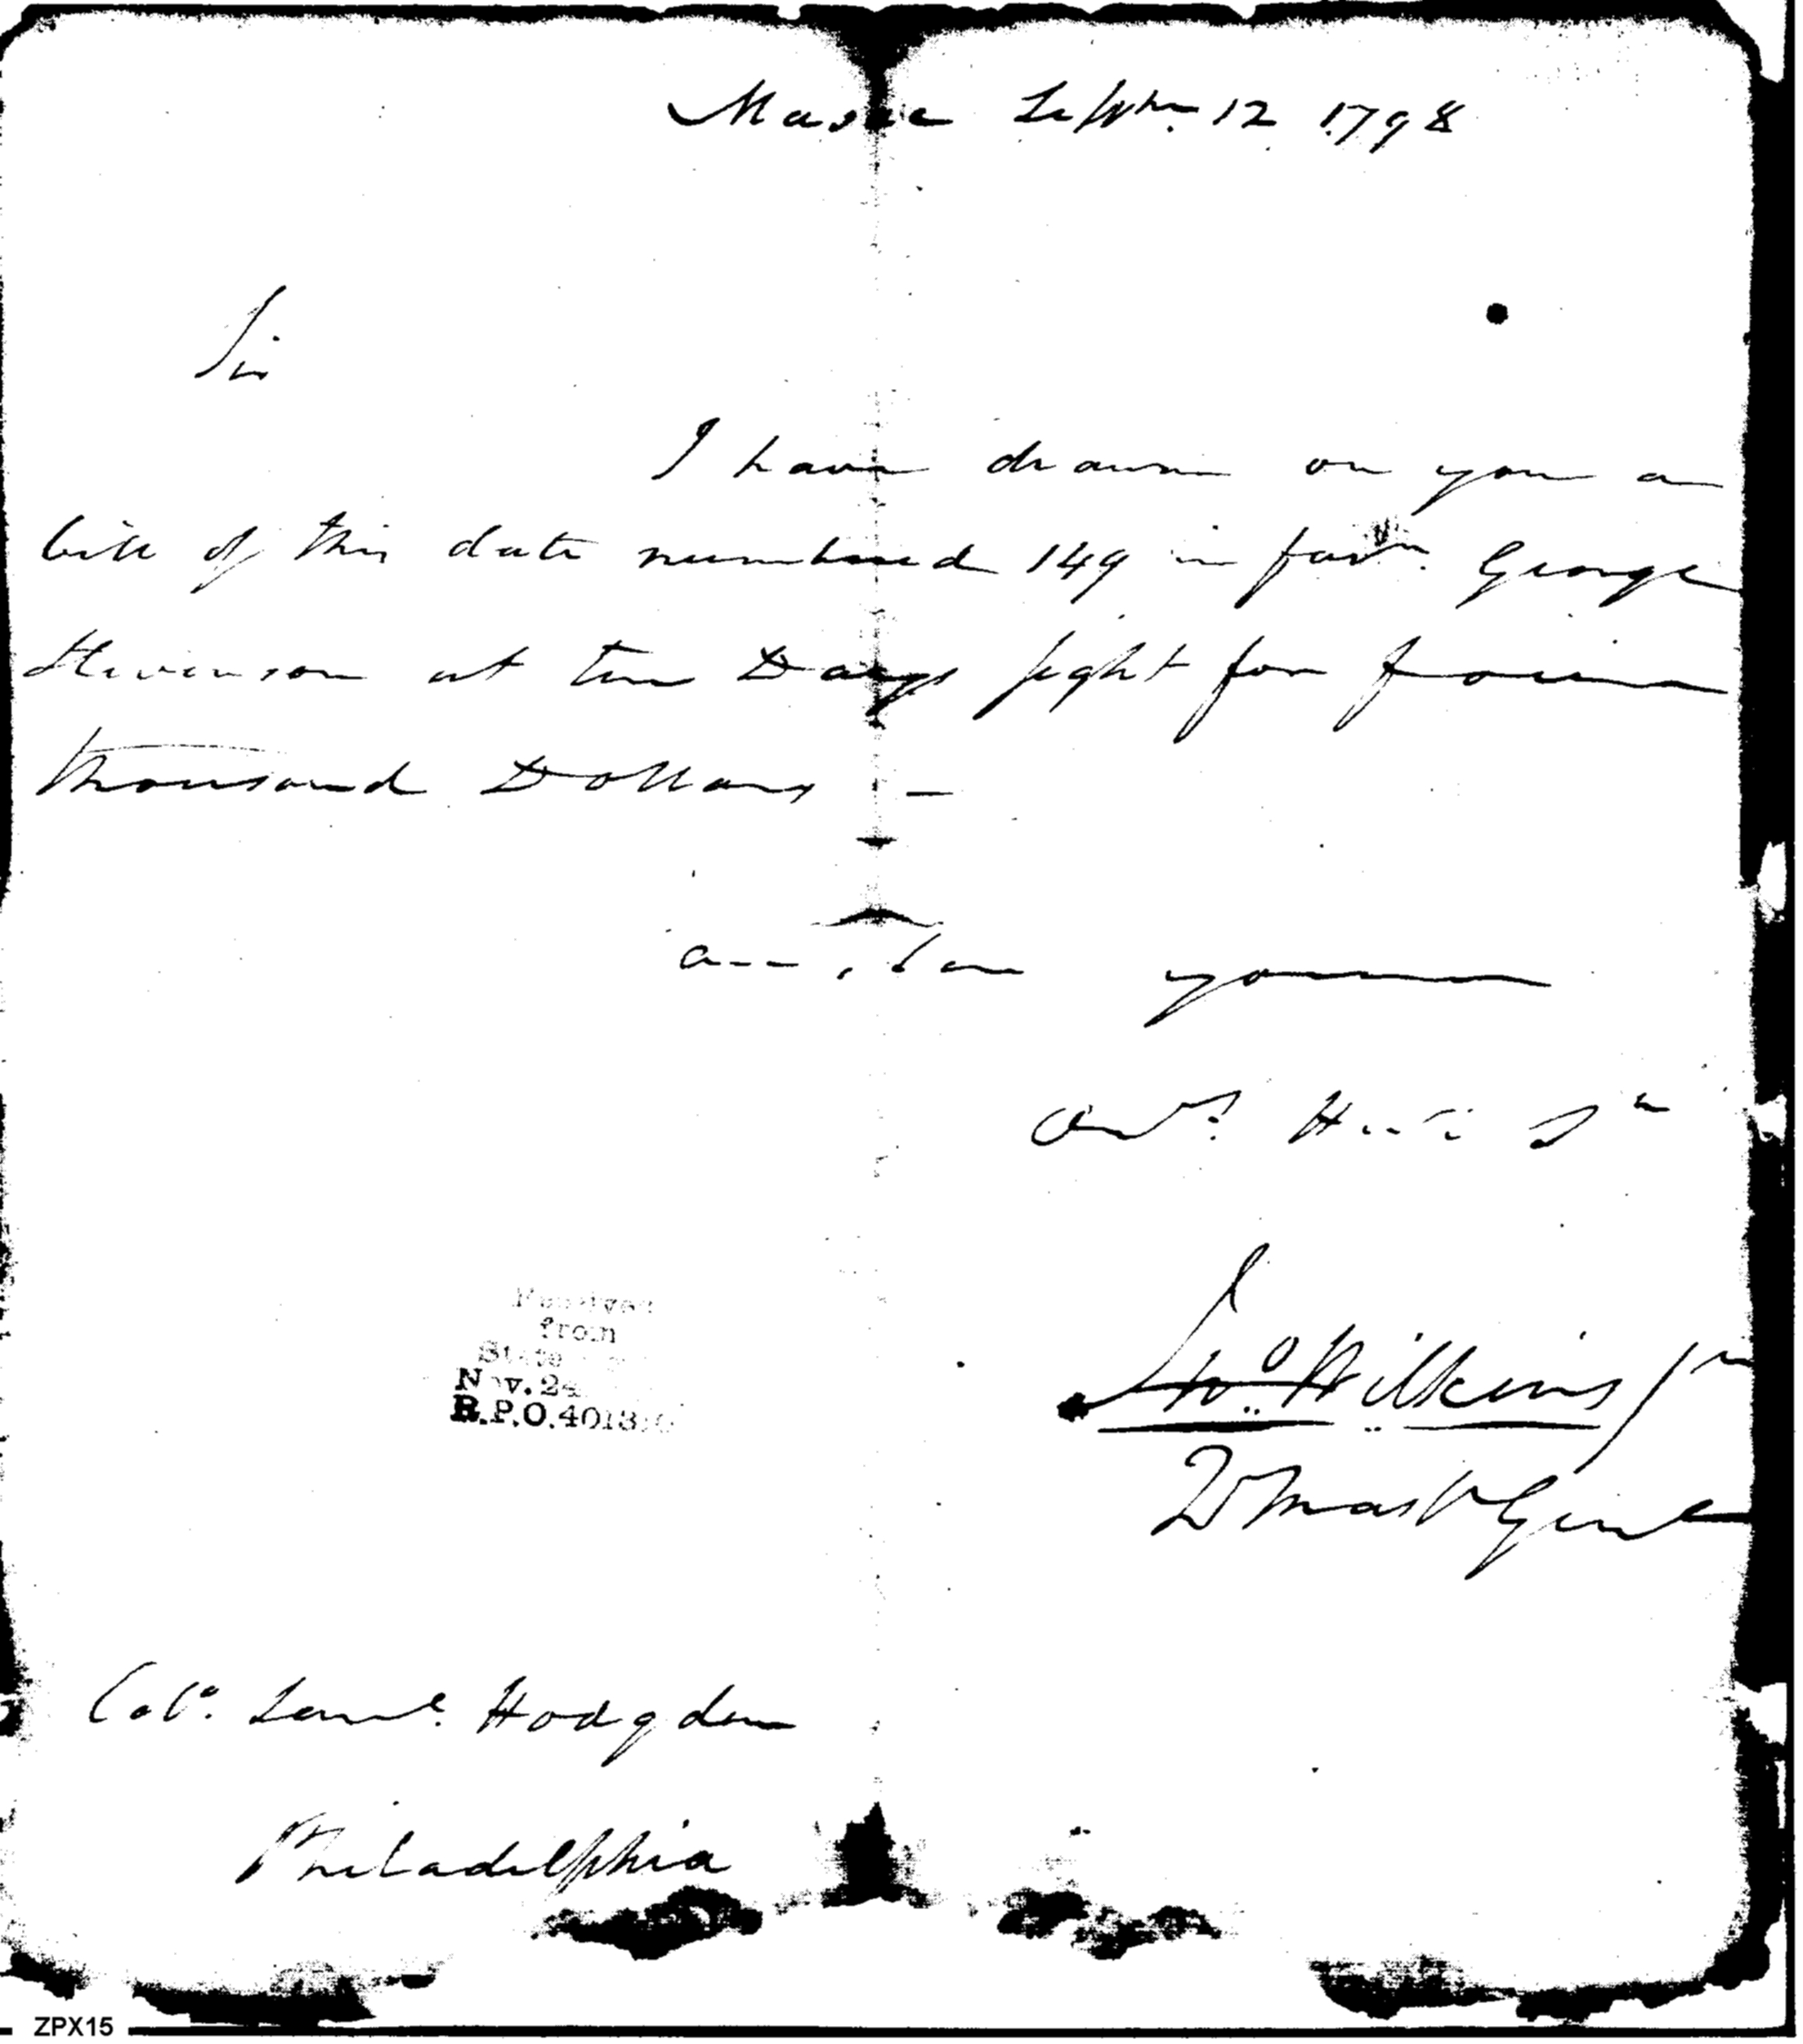 Septbr. 12 1798
Sir
I have drawn on you a
bill of this date numbered 149 in favr. George
Stevenson at ten Days sight for four
thousand Dollars –
am your
Obdt. Hble St
Jno. Wilkins Jr
Qr Mastr Genl
Received
from
State
Nov. 24
R.P.O. 4013
Colo. Saml. Hodgdon
Philadelphia
ZPX15